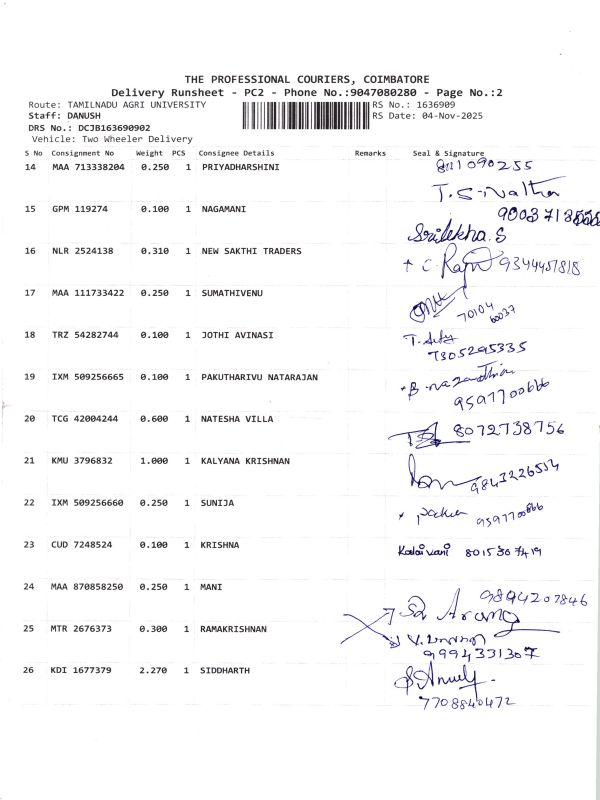 THE PROFESSIONAL COURIERS, COIMBATORE
Delivery Runsheet - PC2 - Phone No.:9047080280 - Page No.:2
Route: TAMILNADU AGRI UNIVERSITY RS No.: 1636909
Staff: DANUSH RS Date: 04-Nov-2025
DRS No.: DCJB163690902
Vehicle: Two Wheeler Delivery
S No Consignment No Weight PCS Consignee Details Remarks Seal & Signature
14 MAA 713338204 0.250 1 PRIYADHARSHINI
15 GPM 119274 0.100 1 NAGAMANI
Srilekha.S
16 NLR 2524138 0.310 1 NEW SAKTHI TRADERS
17 MAA 111733422 0.250 1 SUMATHIVENU
70104
60037
18 TRZ 54282744 0.100 1 JOTHI AVINASI
7305295335
19 IXM 509256665 0.100 1 PAKUTHARIVU NATARAJAN
20 TCG 42004244 0.600 1 NATESHA VILLA 8072738756
21 KMU 3796832 1.000 1 KALYANA KRISHNAN
9843226534
22 IXM 509256660 0.250 1 SUNIJA
23 CUD 7248524 0.100 1 KRISHNA Kalaivani 8015307419
24 MAA 870858250 0.250 1 MANI 9894207846
25 MTR 2676373 0.300 1 RAMAKRISHNAN
9994331307
26 KDI 1677379 2.270 1 SIDDHARTH
7708840472